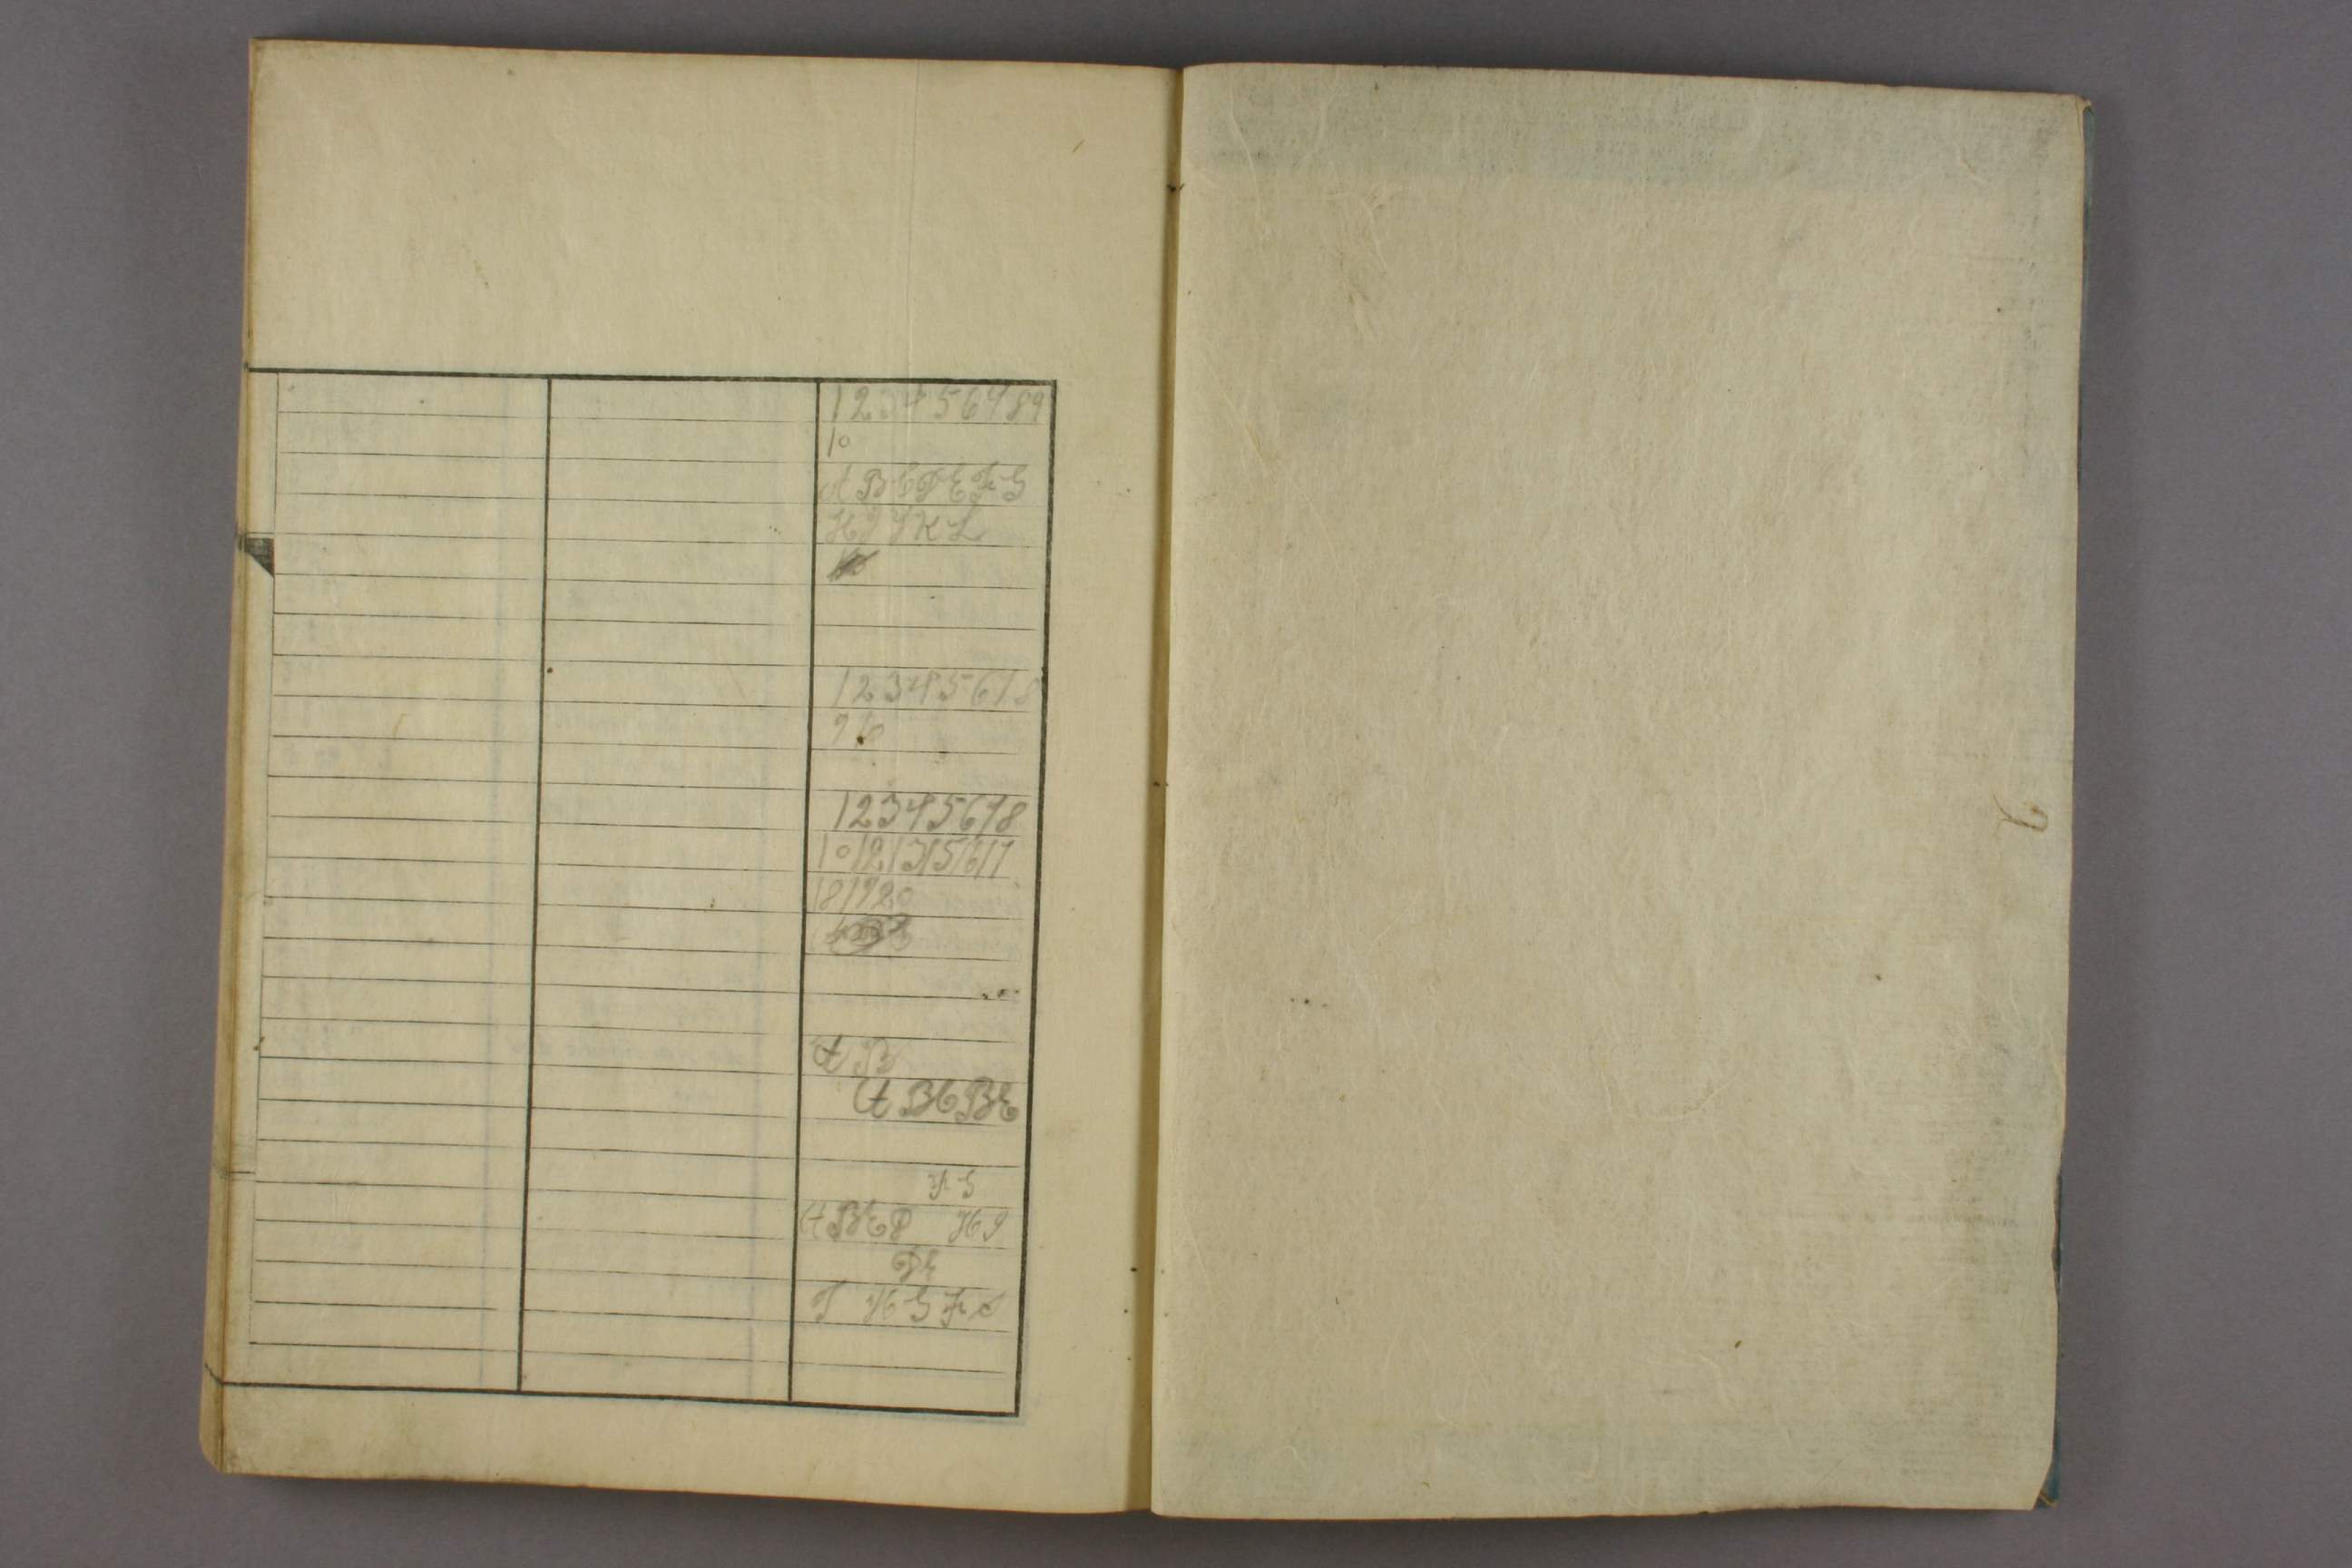 1 2 3 4 5 6 7 8 9
10
A B C D E F G
H I J K L
1 2 3 4 5 6 7 8
9 10
1 2 3 4 5 6 7 8
10 12 13 15 16 17
18 19 20
A B
A B C B E
F G
A B E D H I
D E
T H G F
2